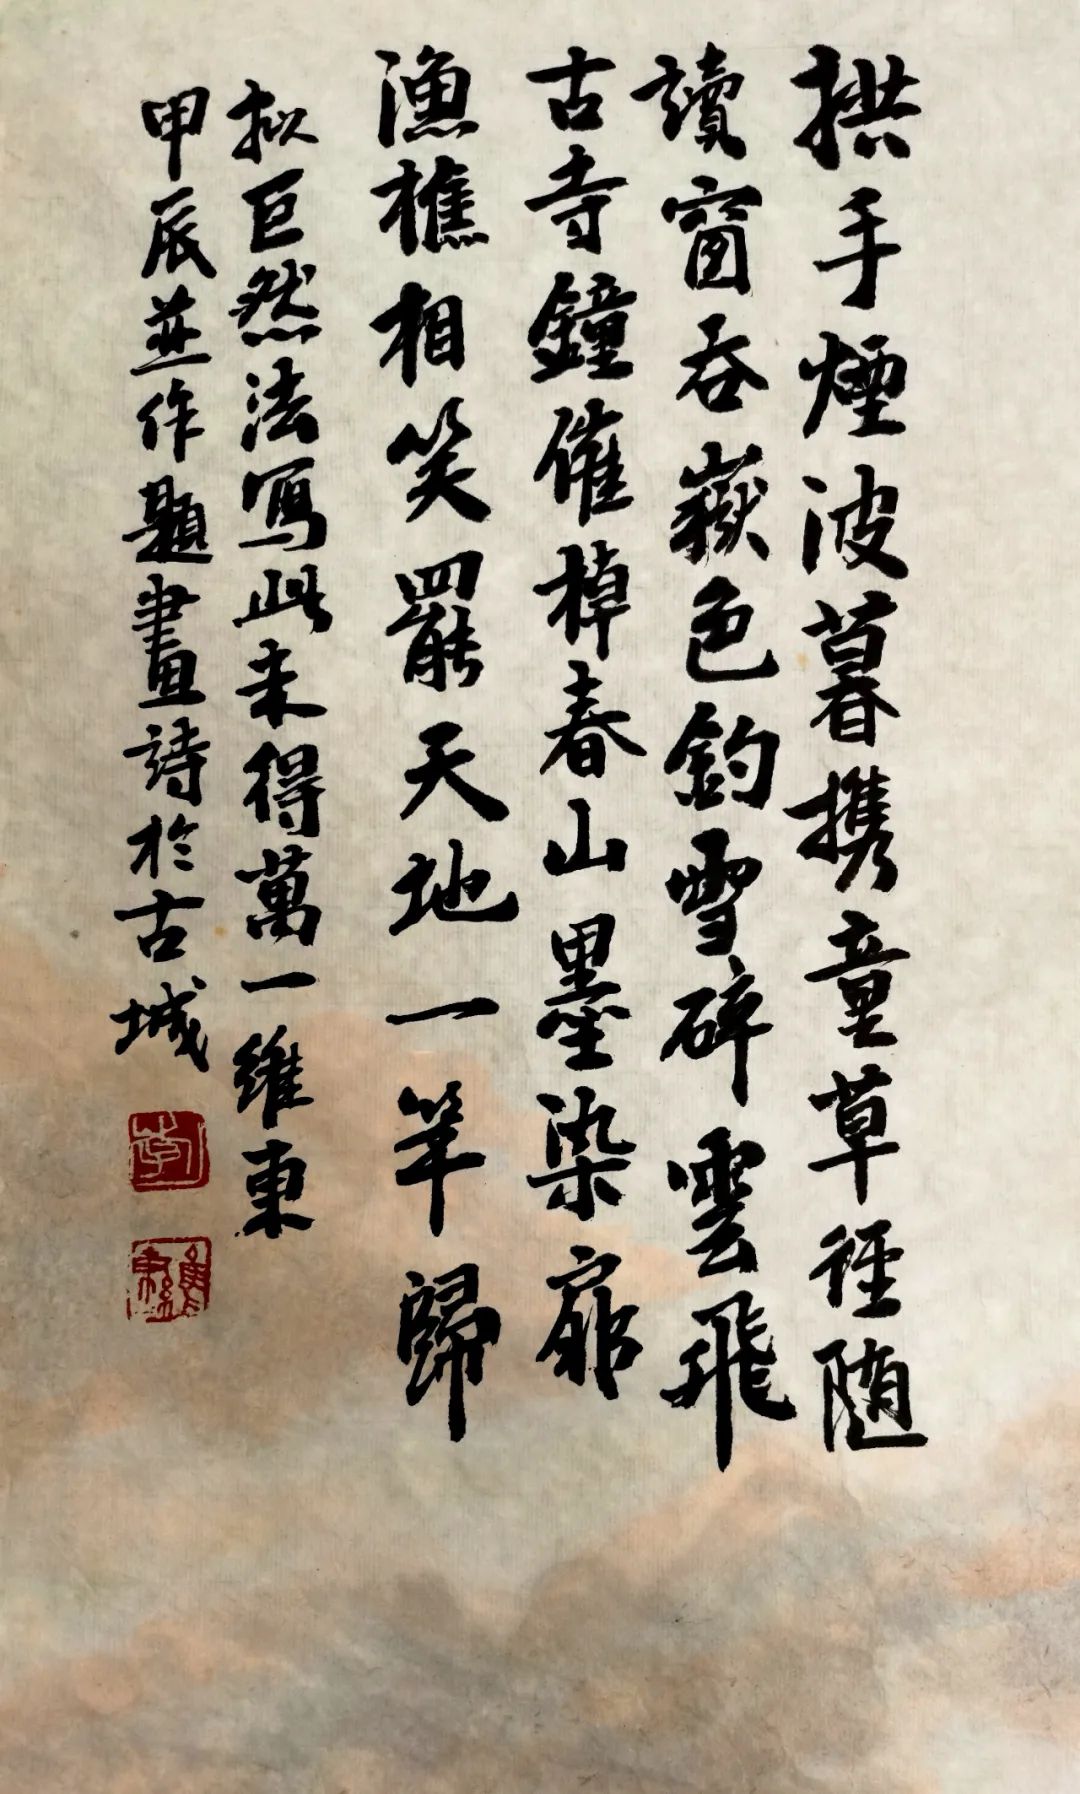 拱手煙波暮携童草径随
讀窗吞嶽色釣雪碎雲飛
古寺鐘催棹春山墨染扉
漁樵相笑罷天地一竿歸
拟巨然法寫此未得萬一維東
甲辰並作題畫詩於古城
李
維東